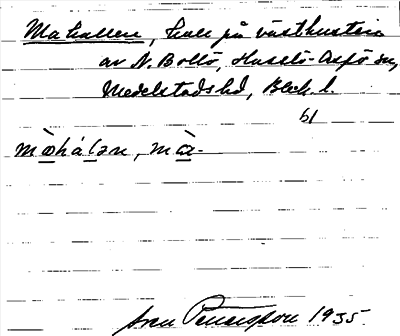 Mahallen, hall på västkusten
av N. Bollö, Hasslö-Aspö sn,
Medelstads hd, Blek. l.
61
mòhálən, mɑ̀-
1935.